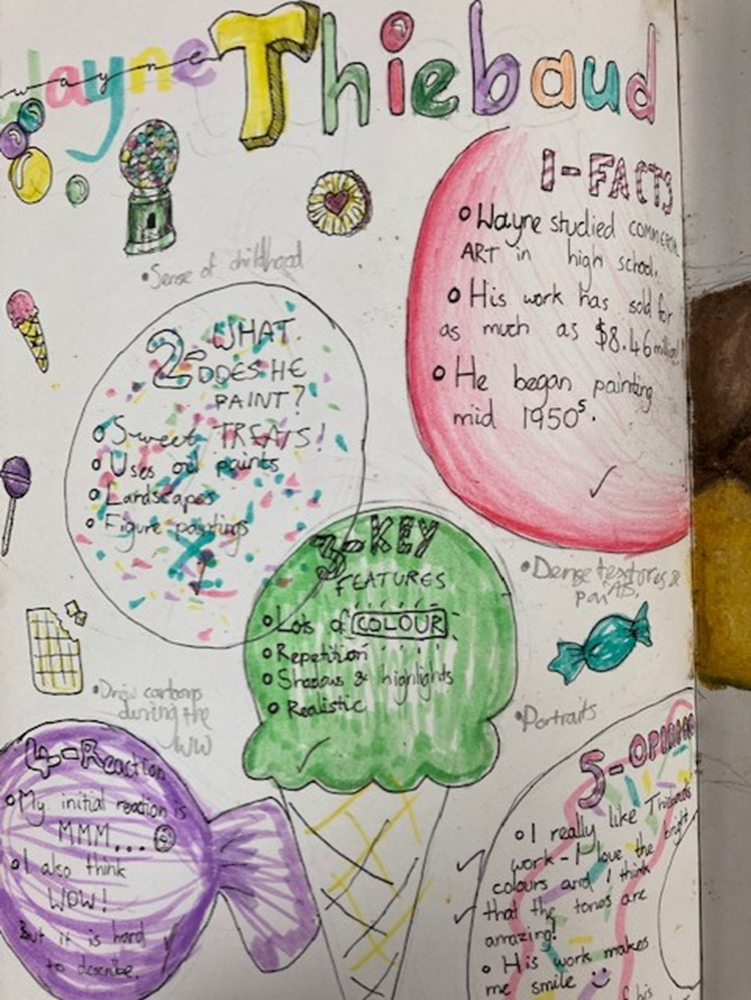 wayne
wayne Thiebaud
1-FACTS
Wayne studied COMMERCIAL
ART in high school.
His work has sold for
as much as $8.46 million!
He began painting
mid 1950s.
Sense of childhood
2- WHAT
DOES HE
PAINT?
Sweet TREATS!
Uses oil paints
Landscapes
Figure paintings
3-KEY
FEATURES
Lots of COLOUR
Repetition
Shadows & highlights
Realistic
Dense textures &
Drew cartoons
during the
WW
Portraits
4-Reaction
My initial reaction is
MMM...
I also think
WOW!
But it is hard
to describe.
5-OPINION
I really like Thiebauds
work - I love the bright
colours and I think
that the tones are
amazing!
His work makes
me smile
of his